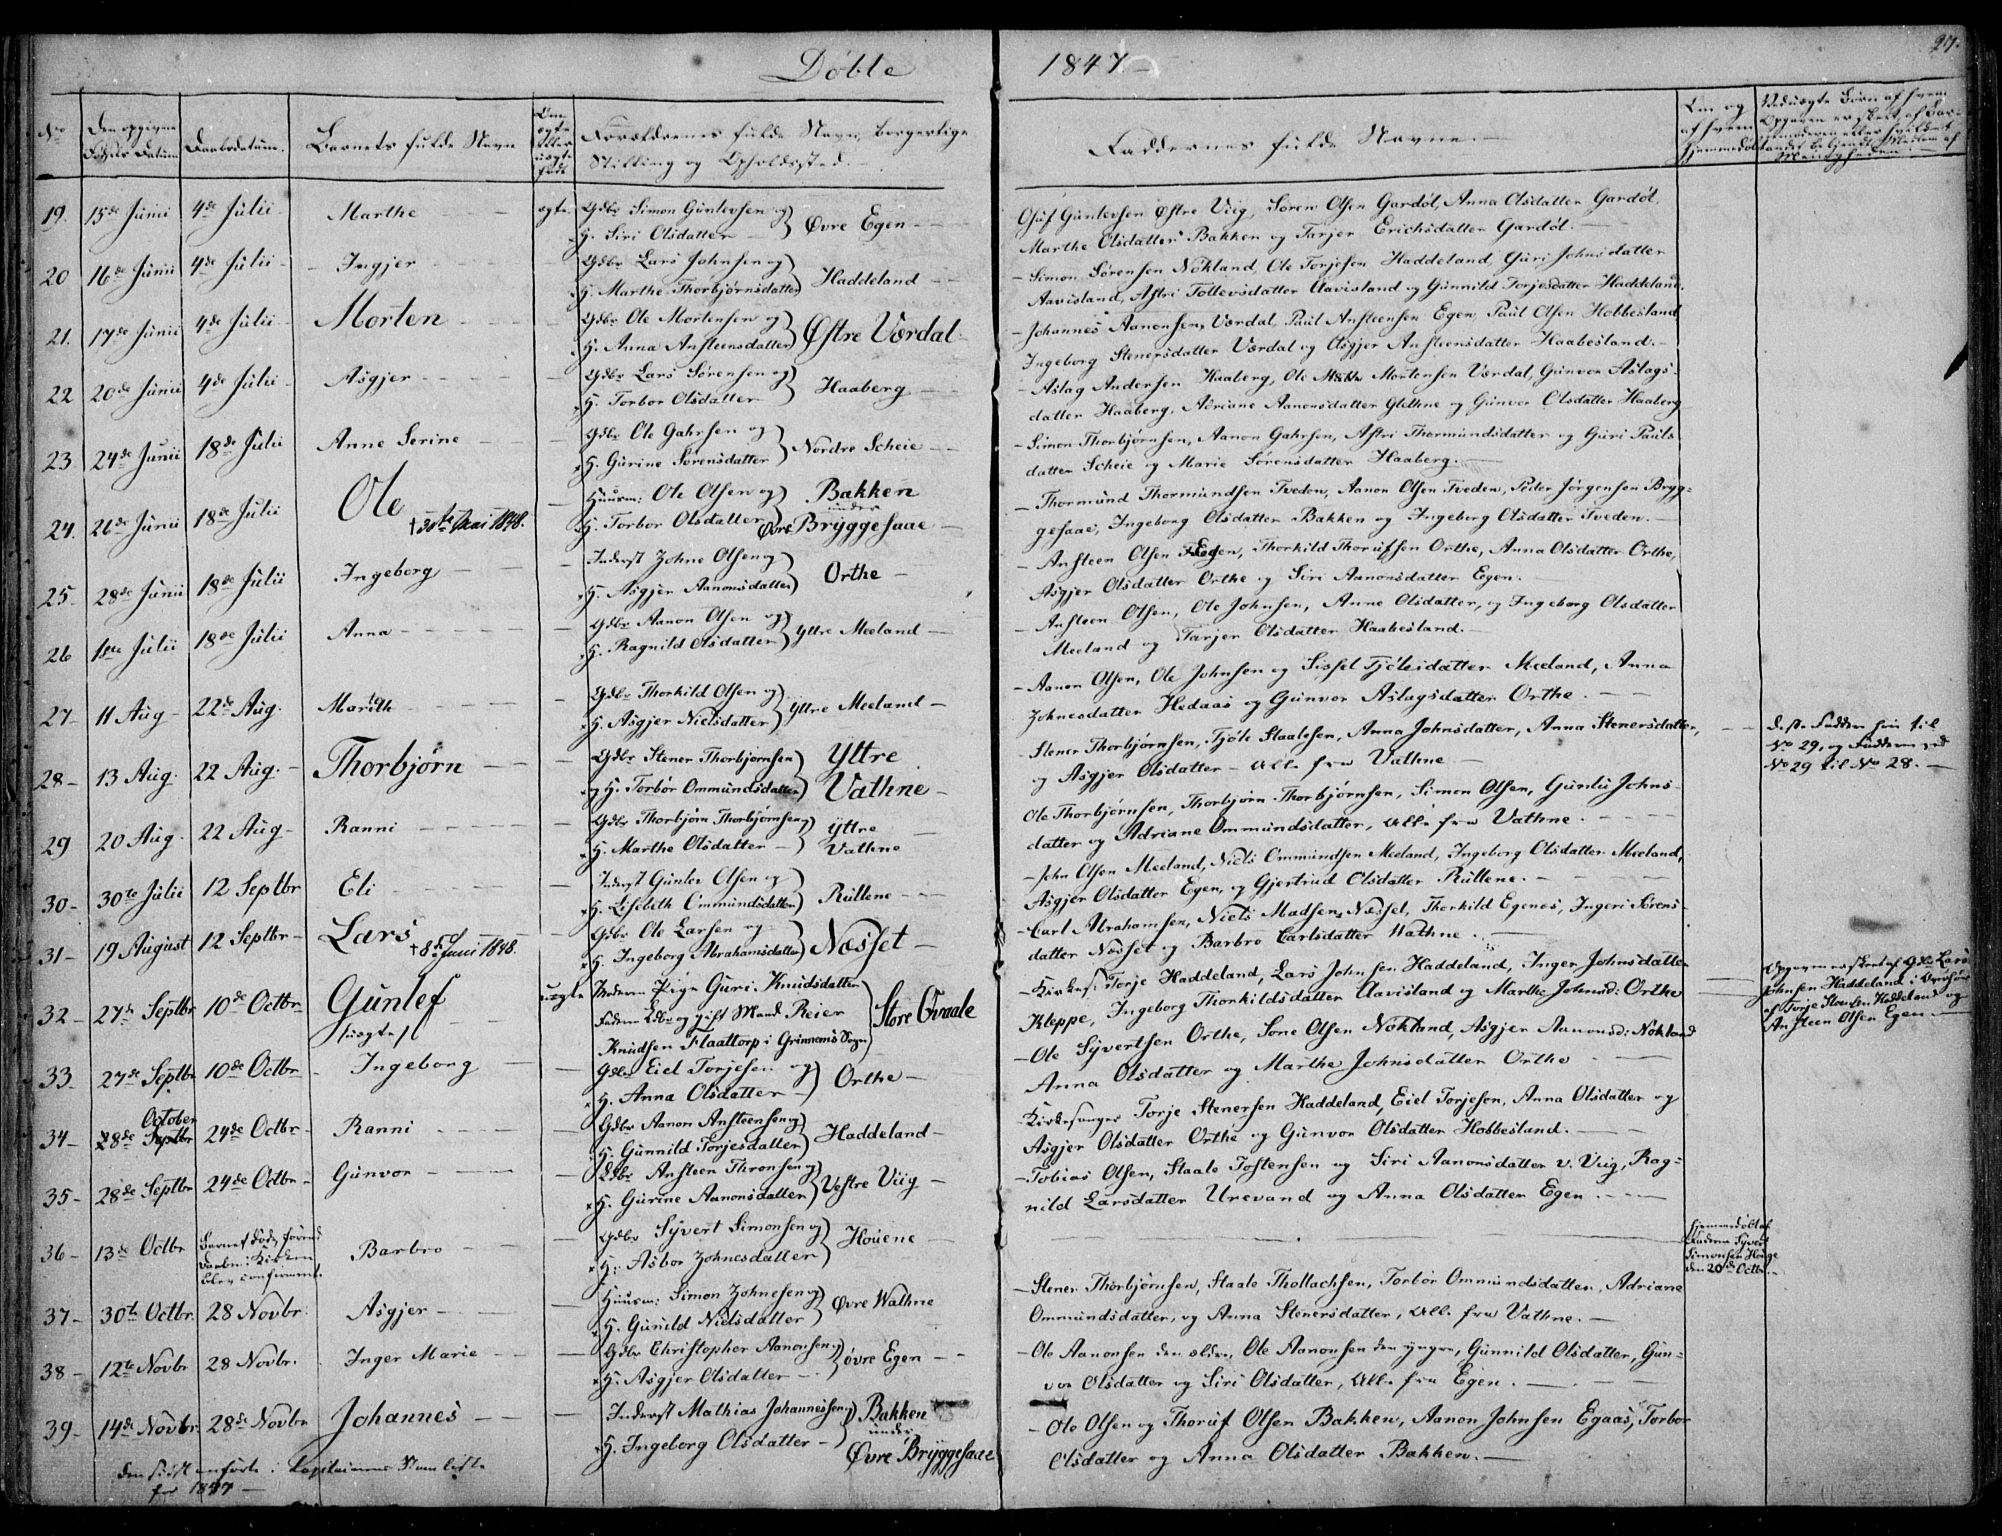 Döbte 1847
27.
No
Den opgivne Fødsels Datum
Daabsdatum.
Barnets fulde Navn
Om ægte eller uægte født
Forældrenes fulde Navn, borgerlige Stilling og Opholdssted.
Faddernes fulde Navne.
Om og af hvem hjemmedøbt
19. 15de Junii 4de Julii Marthe ægte Gdbr Simon Gunlevsen og
H. Siri Olsdatter Øvre Egen
Osuf Gunlevsen Østre Viig, Søren Olsen Gardøl, Anna Olsdatter Gardøl,
Marthe Olsdatter Bakken og Tarjer Erichsdatter Gardøl.
20 16de Junii 4de Julii Ingjer Gdbr Lars Johnsen og
H. Marthe Thorbjörnsdatter Haddeland
Simon Sørensen Nökland, Ole Torjesen Haddeland, Guri Johnsdatter
Aavisland, Astri Tollevsdatter Aavisland og Gunnild Torjesdatter Haddeland.
21. 17de Junii 4de Julii Morten Gdbr Ole Mortensen og
H. Anna Ansteensdatter Østre Værdal
Johannes Aanonsen Værdal, Paul Ansteensen Egen, Paul Olsen Hobbesland
Ingeborg Stenersdatter Værdal og Asgjer Ansteensdatter Haabesland.
22 20de Junii 4de Julii Asgjer Gdbr Lars Sørensen og
H. Torbor Olsdatter Haaberg
Aslag Andersen Haaberg, Ole Mortensen Værdal, Gunvor Aslags-
datter Haaberg, Adriane Aanonsdatter Glethne og Gunvor Olsdatter Haaberg
23 24de Junii 18de Julii Anne Serine Gdbr Ole Gahrsen og
H. Gurine Sørensdatter Nordre Scheie
Simon Thorbjørnsen, Aanon Gahrsen, Astri Thormundsdatter og Guri Pauls
datter Scheie og Marie Sørensdatter Haaberg.
24. 26de Junii 18de Julii Ole † 30te Mai 1848. Huusm: Ole Olsen og
H. Torbor Olsdatter Bakken under Øvre Bryggesaae
Thormund Thormundsen Tveden, Aanon Olsen Tveden, Peder Jørgensen Brygg-
gesaae, Ingeborg Olsdatter Bakken og Ingeborg Olsdatter Tveden.
25 28de Junii 18de Julii Ingeborg Inderst Zohne Olsen og
H. Asgjer Aanonsdatter Orthe
Ansteen Olsen Egen, Thorkild Thorufsen Orthe, Anna Olsdatter Orthe,
Asgjer Olsdatter Orthe og Siri Aanonsdatter Egen.
26 1ste Julii 18de Julii Anna Gdbr Aanon Olsen og
H. Ragnild Olsdatter Yttre Meeland
Ansteen Olsen, Ole Johnsen, Anne Olsdatter, og Ingeborg Olsdatter
Meeland og Tarjer Olsdatter Haabesland.
27 11 Aug 22de Aug. Marith Gdbr Thorkild Olsen og
H. Asgjer Nielsdatter Yttre Meeland
Aanon Olsen, Ole Johnsen og Sissel Tjölsdatter Meeland, Anna
Zohnesdatter Hedaas og Gunvor Aslagsdatter Orthe.
28 13 Aug. 22 Aug. Thorbjørn Gdbr Stener Thorbjørnsen
og H. Torbor Ommundsdatter Yttre Vathne
Stener Thorbjørnsen, Tjöls Staalesen, Anna Johnsdatter, Anna Stenersdatter,
og Asgjer Olsdatter alle fra Vathne
Disse Faddere hør til
No 29, og Fadderne ved
No 29 til No 28.
29 20 Aug. 22 Aug Ranni Gdbr Thorbjörn Thorbjørnsen og
H. Marthe Olsdatter Yttre Vathne
Ole Thorbjørnsen, Thorbjørn Thorbjørnsen, Simon Olsen, Gunlu Johns-
datter og Adriane Ommundsdatter, alle fra Vathne.
30 30te Julii 12 Septbr Eli Inderst Gunlev Olsen og
H. Lisebeth Ommundsdatter Rullene
John Olsen Meeland, Niels Ommundsen Meeland, Ingeborg Olsdatter Meeland,
Asgjer Olsdatter Egen, og Gjertrud Olsdatter Rullene.
31 19 August 12 Septbr Lars † 8de Juni 1848. Gdbr Ole Larsen og
H. Ingeborg Abrahamsdatter Næsset
Carl Abrahamsen, Niels Madsen Næsset, Thorkild Egenes, Ingeri Sørens-
datter Næsset og Barbro Carlsdatter Wathne.
32 27de Septbr 10de Octbr Gunlef (uægte) uægte Moderen Pige Guri Knudsdatter
Faderen Gdbr og gift Mand Reier
Knudsen Flaattorp i Grimnems Sogn Store Qvaale
Kirkes: Torje Haddeland, Lars Johnsen Haddeland, Inger Johnsdatter
Kleppe, Ingeborg Thorkildsdatter Aavisland og Marthe Johnsd: Orthe
Opgaven er skeet af Gdbr Lars
Johnsen Haddeland i Overhør
af Torje Stensen Haddeland og
Ansteen Olsen Egen.
33 27de Septbr 10de Octbr Ingeborg Gdbr Eiel Torjesen og
H. Anna Olsdatter Orthe
Ole Syvertsen Orthe, Sone Olsen Nökland, Asgjer Aanonsd: Nökland
Anna Olsdatter og Marthe Johnsdatter Orthe
34 28de Septbr October 24de Octbr Ranni Gdbr Aanon Ansteensen og
H. Gunnild Torjesdatter Haddeland
Kirkesanger Torje Stenersen Haddeland, Eiel Torjesen, Anna Olsdatter og
Asgjer Olsdatter Orthe og Gunvor Olsdatter Hobbesland.
35 28de Septbr 24de Octbr Gunvor Gdbr Ansteen Thronsen og
H. Gurine Aanonsdatter Vestre Viig
Tobias Olsen, Staale Tostensen og Siri Aanonsdatter v. Viig, Rag-
nild Larsdatter Urevand og Anna Olsdatter Egen.
36 13de Octbr Barnet døde førend
Daaben i Kirken
blev confirmeret. Barbro Gdbr Syvert Simonsen og
H. Asbor Zohnesdatter Houene
Hjemmedøbt af
Faderen Syvert
Simonsen Houge
den 20de Octbr
37 30te Octbr. 28 Novbr. Asgjer Huusm: Simon Zohnesen og
H. Gunild Nielsdatter Øvre Wathne
Stener Thorbjørnsen, Staale Thollachsen, Torbor Ommundsdatter, Adriane
Ommundsdatter, og Anna Stenersdatter, alle fra Vathne.
38 12te Novbr 28 Novbr. Inger Marie Gdbr Christopher Aanonsen og
H. Asgjer Olsdatter Øvre Egen
Ole Aanonsen den ældre, Ole Aanonsen den yngre, Gunnild Olsdatter, Gun-
vor Olsdatter og Siri Olsdatter, alle fra Egen.
39 14de Novbr 28de Novbr Johannes Inderst Mathias Johannessen og
H. Ingeborg Olsdatter Bakken under Øvre Bryggesaae
Ole Olsen og Thoruf Olsen Bakken, Aanon Johnsen Egaas, Torbor
Olsdatter og Anna Olsdatter Bakken.
den sidst anførte i Capitainens Mandliste
for 1847